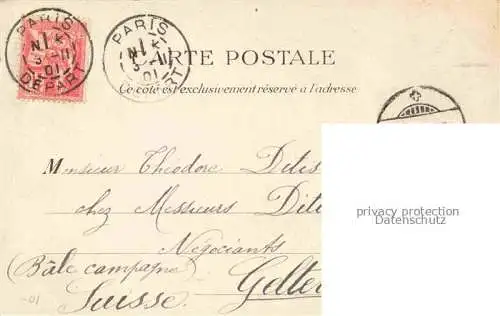 PARIS
DEPART
PARIS
DEPART
CARTE POSTALE
Ce côté est exclusivement réservé à l'adresse
Monsieur Théodore
chez Messieurs
Négociants
(Bâle campagne)
Suisse.
privacy protection
Datenschutz